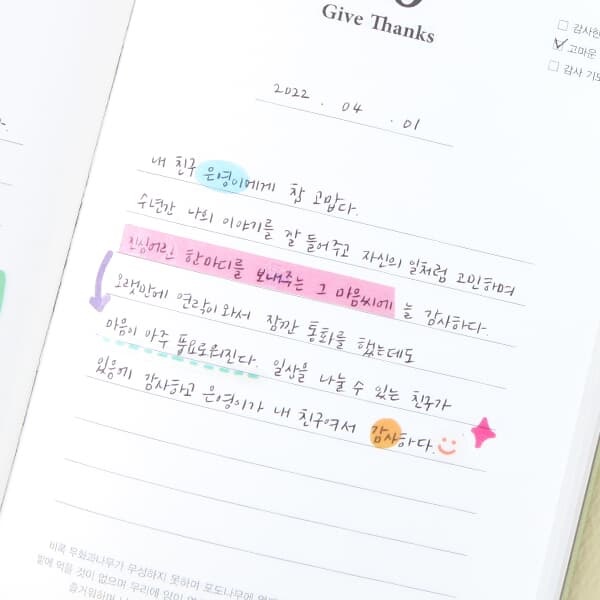 Give Thanks
고마운
감사 기도
2022 . 04 . 01
내 친구 은영이에게 참 고맙다.
수년간 나의 이야기를 잘 들어주고 자신의 일처럼 고민하며
진심어린 한마디를 보내주는 그 마음씨에 늘 감사하다.
오랫만에 연락이 와서 잠깐 통화를 했는데도
마음이 아주 풍요로워진다. 일상을 나눌 수 있는 친구가
있음에 감사하고 은영이가 내 친구여서 감사하다.
비록 무화과나무가 무성하지 못하며 포도나무에
밭에 먹을 것이 없으며 우리에 양이
즐거워하며